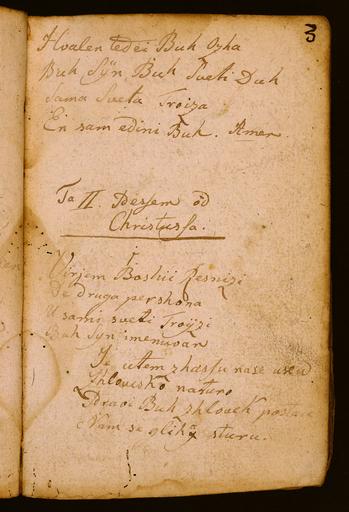 3
Hvalen tedei Buh Ozha
Buh Sÿn Buh Sveti Duh
Sama Sveta Troiza
En sam edini Buh. Amen.
Ta II. Pessem od
Christussa.
Virjem Boshii Resnizi
De druga pershona
U sami sveti Troÿzi
Buh Sÿn imenuvan
Je utem zhassu nase useu
Zhlovesko naturo
Pravi Buh zhlovek
Nam se glih sturu.